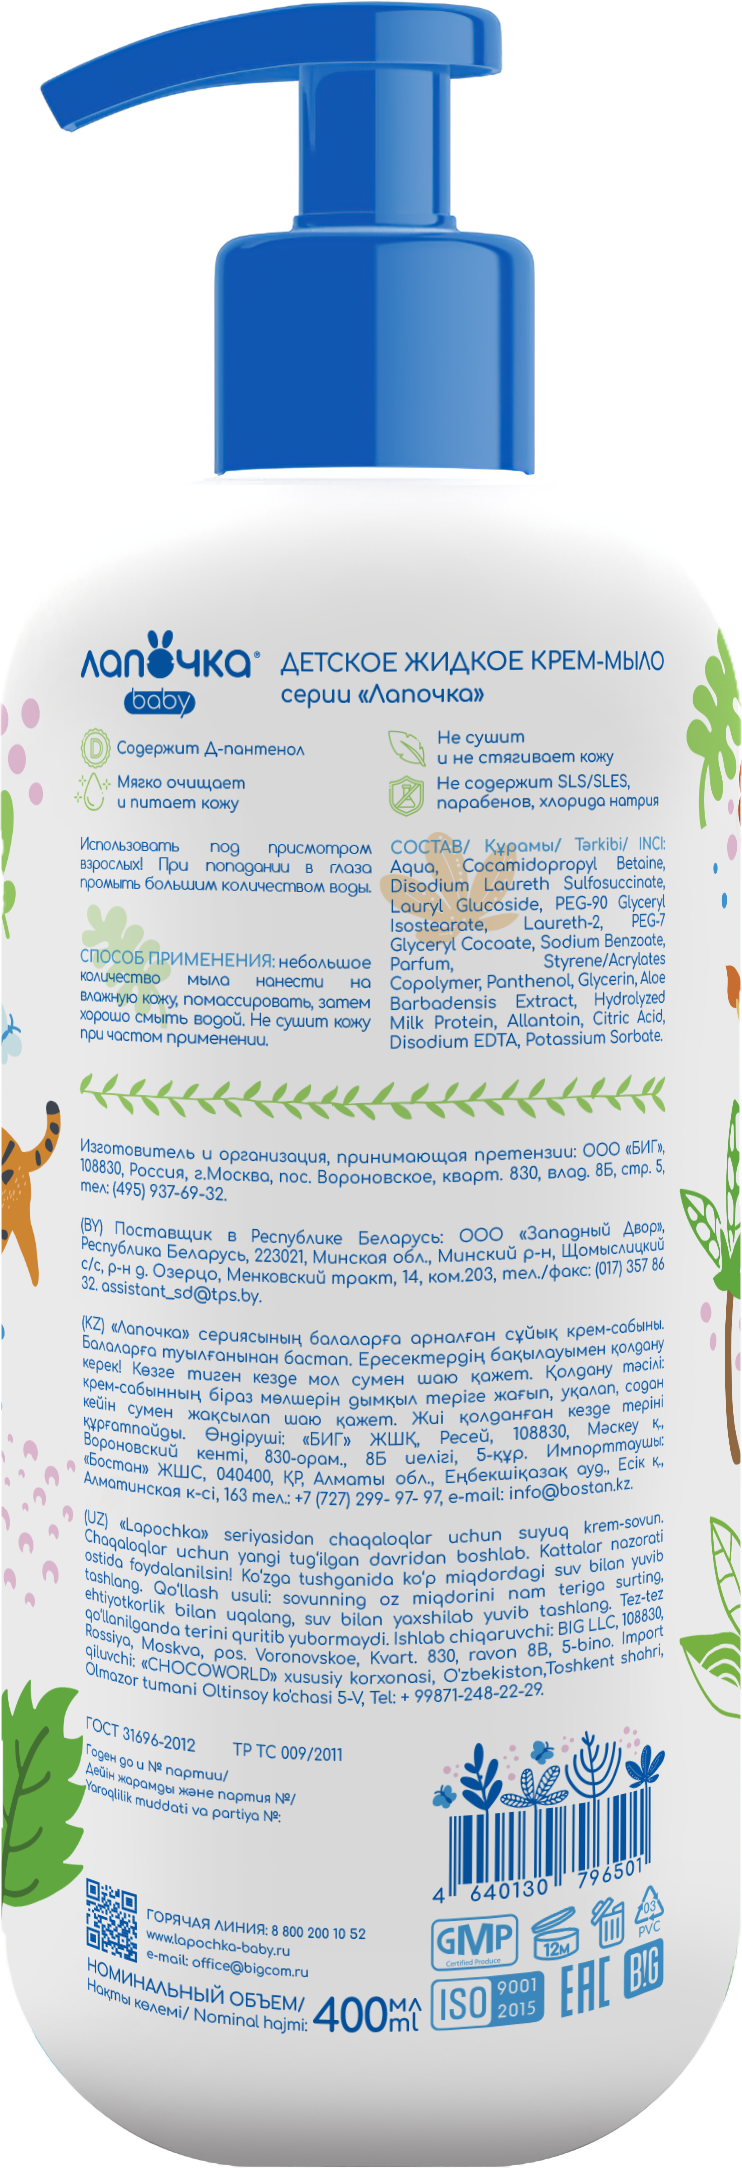 лапочка®
baby
ДЕТСКОЕ ЖИДКОЕ КРЕМ-МЫЛО
серии «Лапочка»
D
Содержит Д-пантенол
Мягко очищает
и питает кожу
Не сушит
и не стягивает кожу
Не содержит SLS/SLES,
парабенов, хлорида натрия
Использовать под присмотром
взрослых! При попадании в глаза
промыть большим количеством воды.
СПОСОБ ПРИМЕНЕНИЯ: небольшое
количество мыла нанести на
влажную кожу, помассировать, затем
хорошо смыть водой. Не сушит кожу
при частом применении.
СОСТАВ/ Құрамы/ Tərkibi/ INCI:
Aqua, Cocomidopropyl Betaine,
Disodium Laureth Sulfosuccinate,
Lauryl Glucoside, PEG-90 Glyceryl
Isostearate, Laureth-2, PEG-7
Glyceryl Cocoate, Sodium Benzoate,
Parfum, Styrene/Acrylates
Copolymer, Panthenol, Glycerin, Aloe
Barbadensis Extract, Hydrolyzed
Milk Protein, Allantoin, Citric Acid,
Disodium EDTA, Potassium Sorbate.
Изготовитель и организация, принимающая претензии: ООО «БИГ»,
108830, Россия, г.Москва, пос. Вороновское, кварт. 830, влад. 8Б, стр. 5,
тел: (495) 937-69-32.
(BY) Поставщик в Республике Беларусь: ООО «Западный Двор»,
Республика Беларусь, 223021, Минская обл., Минский р-н, Щомыслицкий
с/с, р-н д. Озерцо, Менковский тракт, 14, ком.203, тел./факс: (017) 357 86
32. assistant_sd@tps.by.
(KZ) «Лапочка» сериясының балаларға арналған сұйық крем-сабыны.
Балаларға туылғанынан бастап. Ересектердің бақылауымен қолдану
керек! Көзге тиген кезде мол сумен шаю қажет. Қолдану тәсілі:
крем-сабынның біраз мөлшерін дымқыл теріге жағып, уқалап, содан
кейін сумен жақсылап шаю қажет. Жиі қолданған кезде теріні
құрғатпайды. Өндіруші: «БИГ» ЖШҚ, Ресей, 108830, Мәскеу қ.,
Вороновский кенті, 830-орам., 8Б иелігі, 5-құр. Импорттаушы:
«Бостан» ЖШС, 040400, ҚР, Алматы обл., Еңбекшіқазақ ауд., Есік қ.,
Алматинская к-сі, 163 тел.: +7 (727) 299- 97- 97, e-mail: info@bostan.kz.
(UZ) «Lapochka» seriyasidan chaqaloqlar uchun suyuq krem-sovun.
Chaqaloqlar uchun yangi tug‘ilgan davridan boshlab. Kattalar nazorati
ostida foydalanilsin! Ko‘zga tushganida ko‘p miqdordagi suv bilan yuvib
tashlang. Qo‘llash usuli: sovunning oz miqdorini nam teriga surting,
ehtiyotkorlik bilan uqalang, suv bilan yaxshilab yuvib tashlang. Tez-tez
qo‘llanilganda terini quritib yubormaydi. Ishlab chiqaruvchi: BIG LLC, 108830,
Rossiya, Moskva, pos. Voronovskoe, Kvart. 830, ravon 8B, 5-bino. Import
qiluvchi: «CHOCOWORLD» xususiy korxonasi, O'zbekiston,Toshkent shahri,
Olmazor tumani Oltinsoy ko'chasi 5-V, Tel: + 99871-248-22-29.
ГОСТ 31696-2012 ТР ТС 009/2011
Годен до и № партии/
Дейін жарамды және партия №/
Yaroqlilik muddati va partiya №:
4 640130 796501
ГОРЯЧАЯ ЛИНИЯ: 8 800 200 10 52
www.lapochka-baby.ru
e-mail: office@bigcom.ru
НОМИНАЛЬНЫЙ ОБЪЕМ/
Нақты көлемі/ Nominal hajmi:
400 мл
ml
GMP
Certified Produce
12М
03
PVC
ISO 9001
2015
EAC
B!G